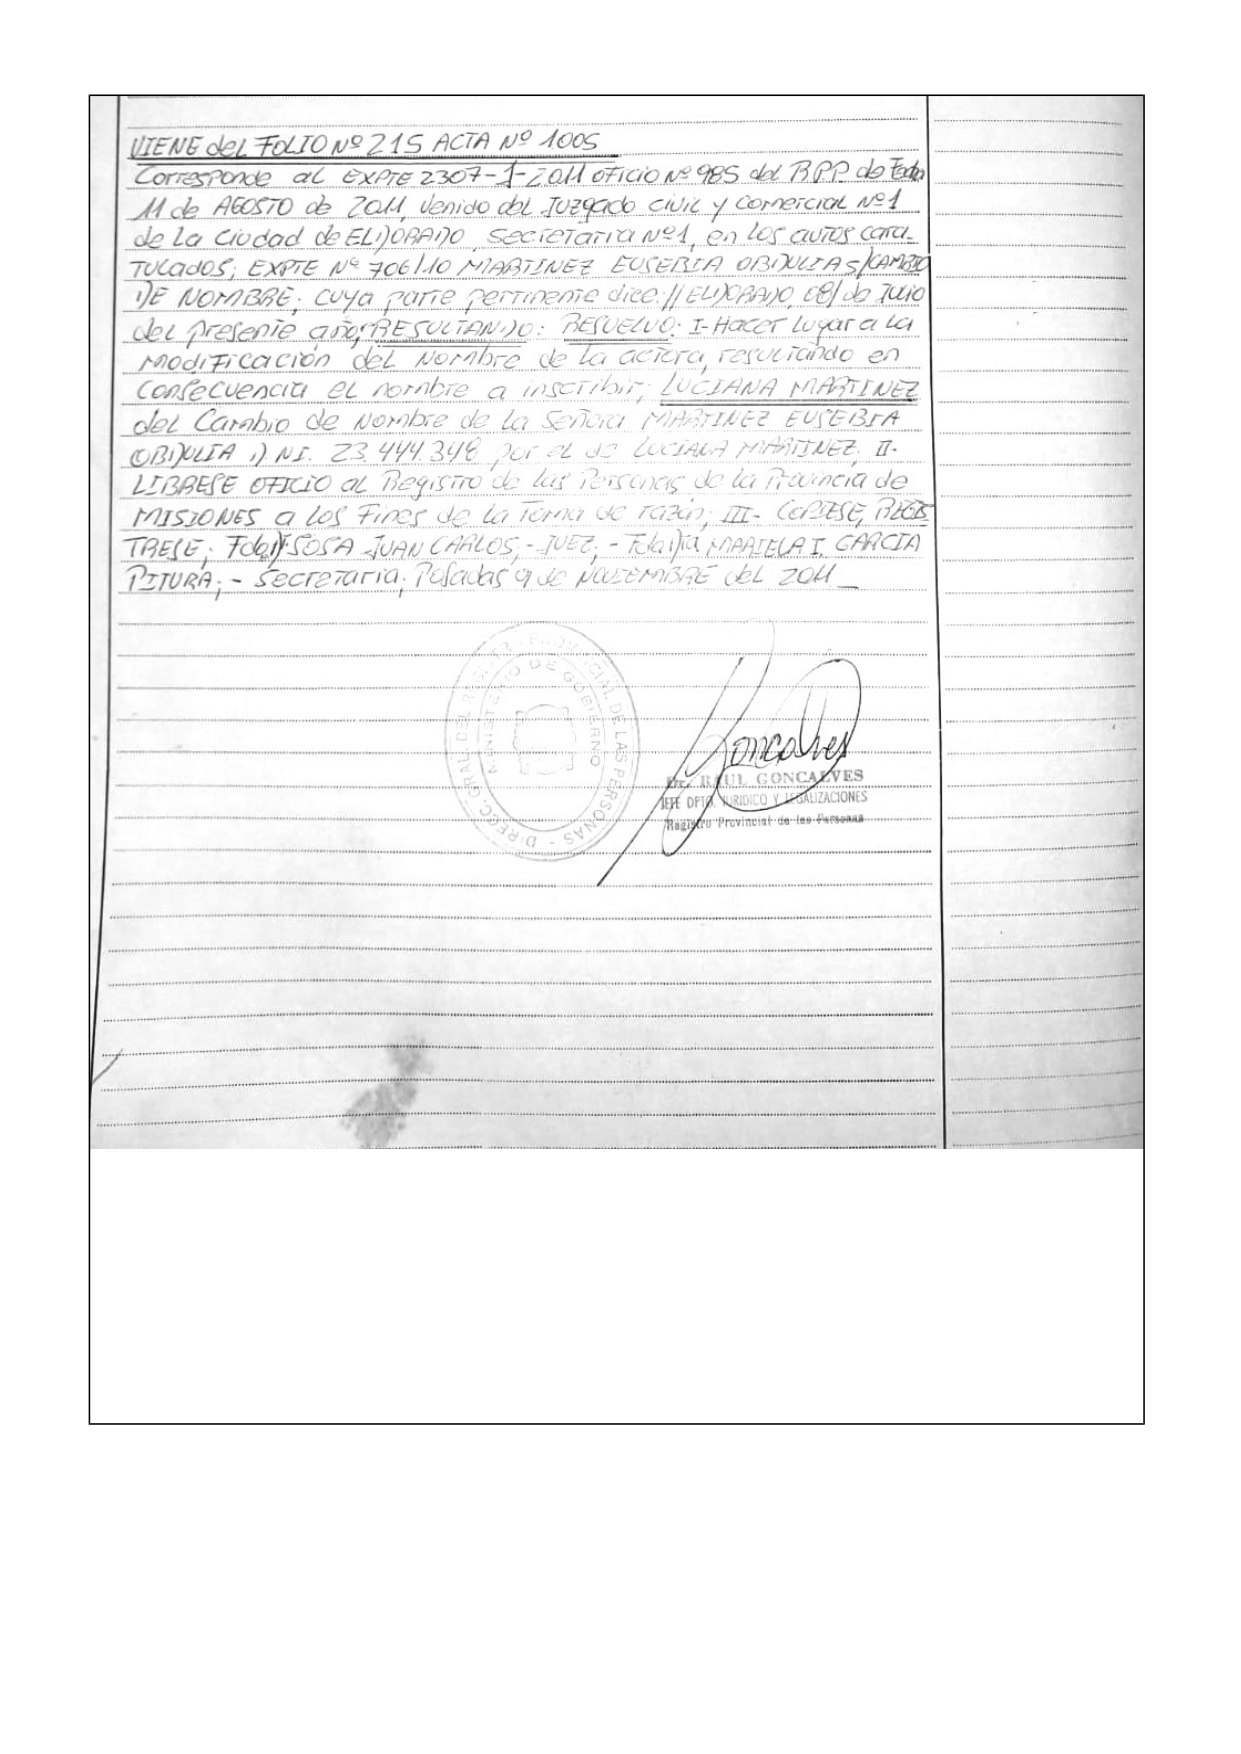 VIENE del FOLIO Nº 215 ACTA Nº 1005
Corresponde al EXPTE 2307-1-2011 oficio Nº 985 del RPP. de Fecha
11 de AGOSTO de 2011, Venido del Juzgado civil y Comercial Nº1
de la Ciudad de ELDORADO, Secretaria Nº1, en los autos cara-
TULADOS; EXPTE Nº 706/10 MARTINEZ EUSEBIA OBDULIA S/CAMBIO
DE NOMBRE; cuya parte pertinente dice: // ELDORADO, 08/ de Julio
del presente año; RESULTANDO: RESUELVO: I-Hacer Lugar a la
Modificación del Nombre de la actora, resultando en
Consecuencia el nombre a inscribir; LUCIANA MARTINEZ
del Cambio de Nombre de la Señora MARTINEZ EUSEBIA
OBDULIA D.NI. 23.444.348 por el de LUCIANA MARTINEZ. II-
LIBRESE OFICIO al Registro de las Personas de la Provincia de
MISIONES a los Fines de la Toma de razón; III- COPIESE, REGIS
TRESE; Fdo. Dr. SOSA JUAN CARLOS,- JUEZ,- Fda. Dra MARIELA I. GARCIA
PITURA;- Secretaria; Posadas 9 de NOVIEMBRE del 2011
DIRECC. GRAL. DEL REGISTRO PROVINCIAL DE LAS PERSONAS -
MINISTERIO DE GOBIERNO
Goncalves
Dr. RAUL GONCALVES
JEFE DPTO. JURIDICO Y LEGALIZACIONES
Registro Provincial de las Personas